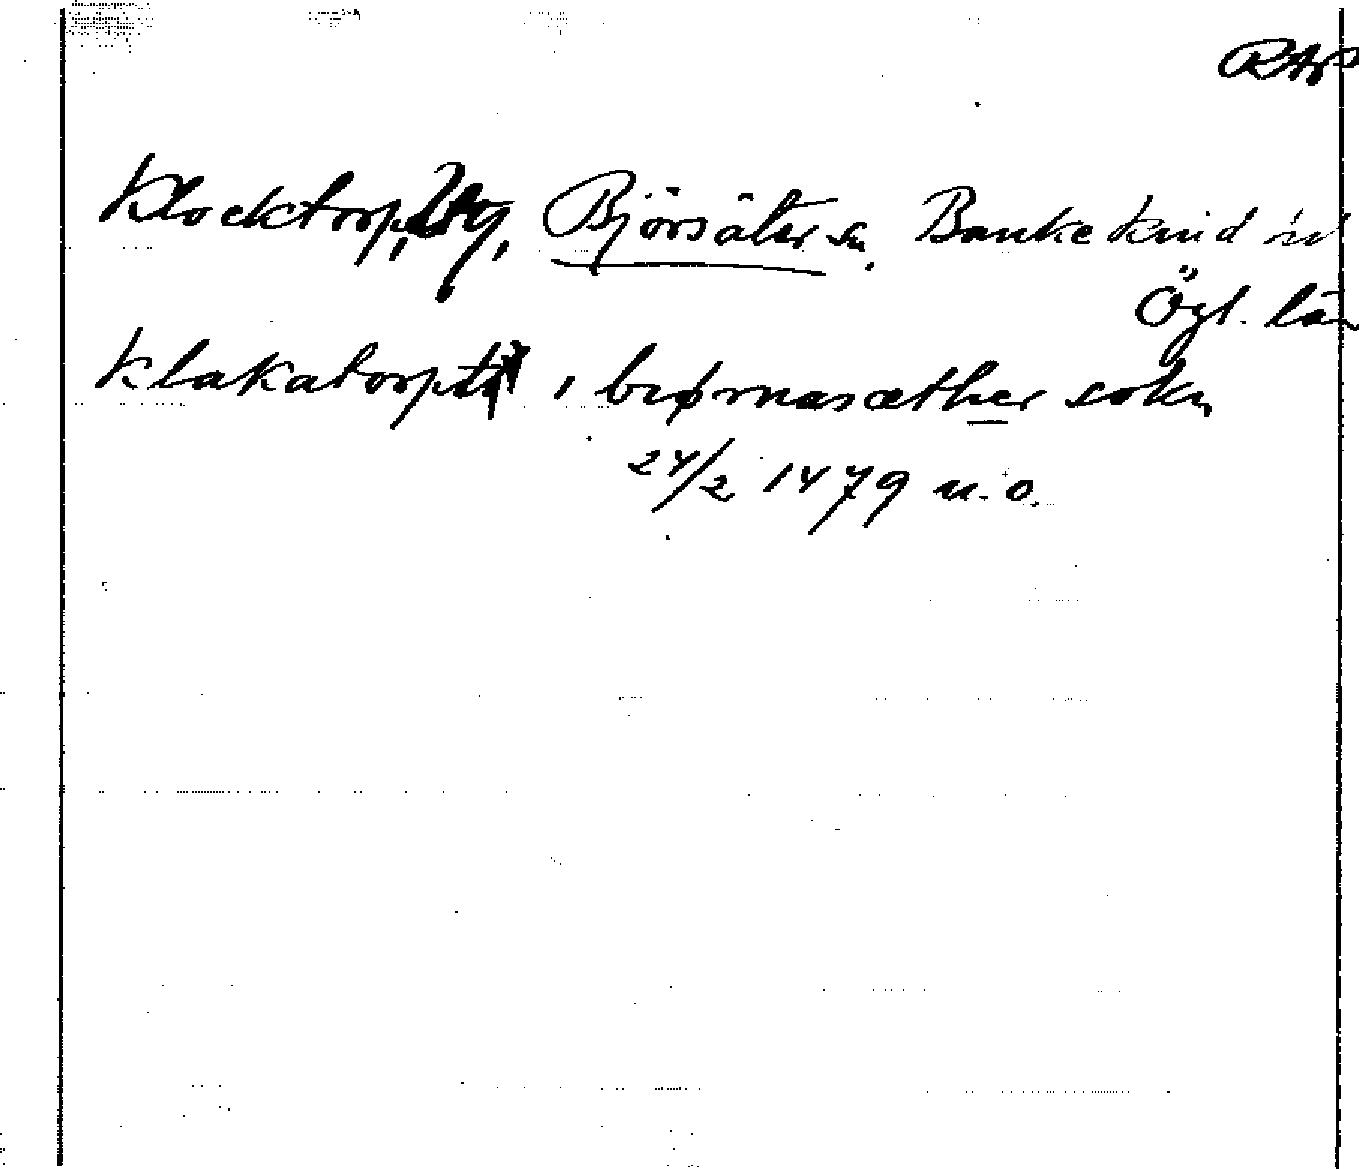 RAP
Klocktorp, by, Björsäter sn, Bankekind
Ögl. län
Klakatorp i biørnasæther sokn
24/2 1479 u.o.